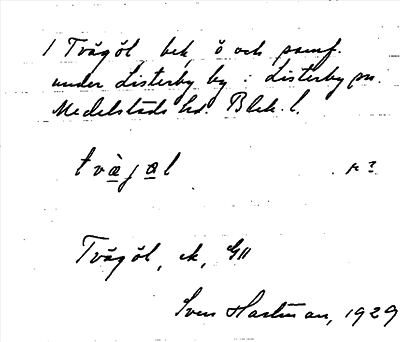 1 Tvägöl, bek ö och samf.
under Listerby by i Listerby sn.
Medelstads hd. Blek. l.
tvàjal r?
Tvägöl, ek, GII
Sven Hartman, 1929